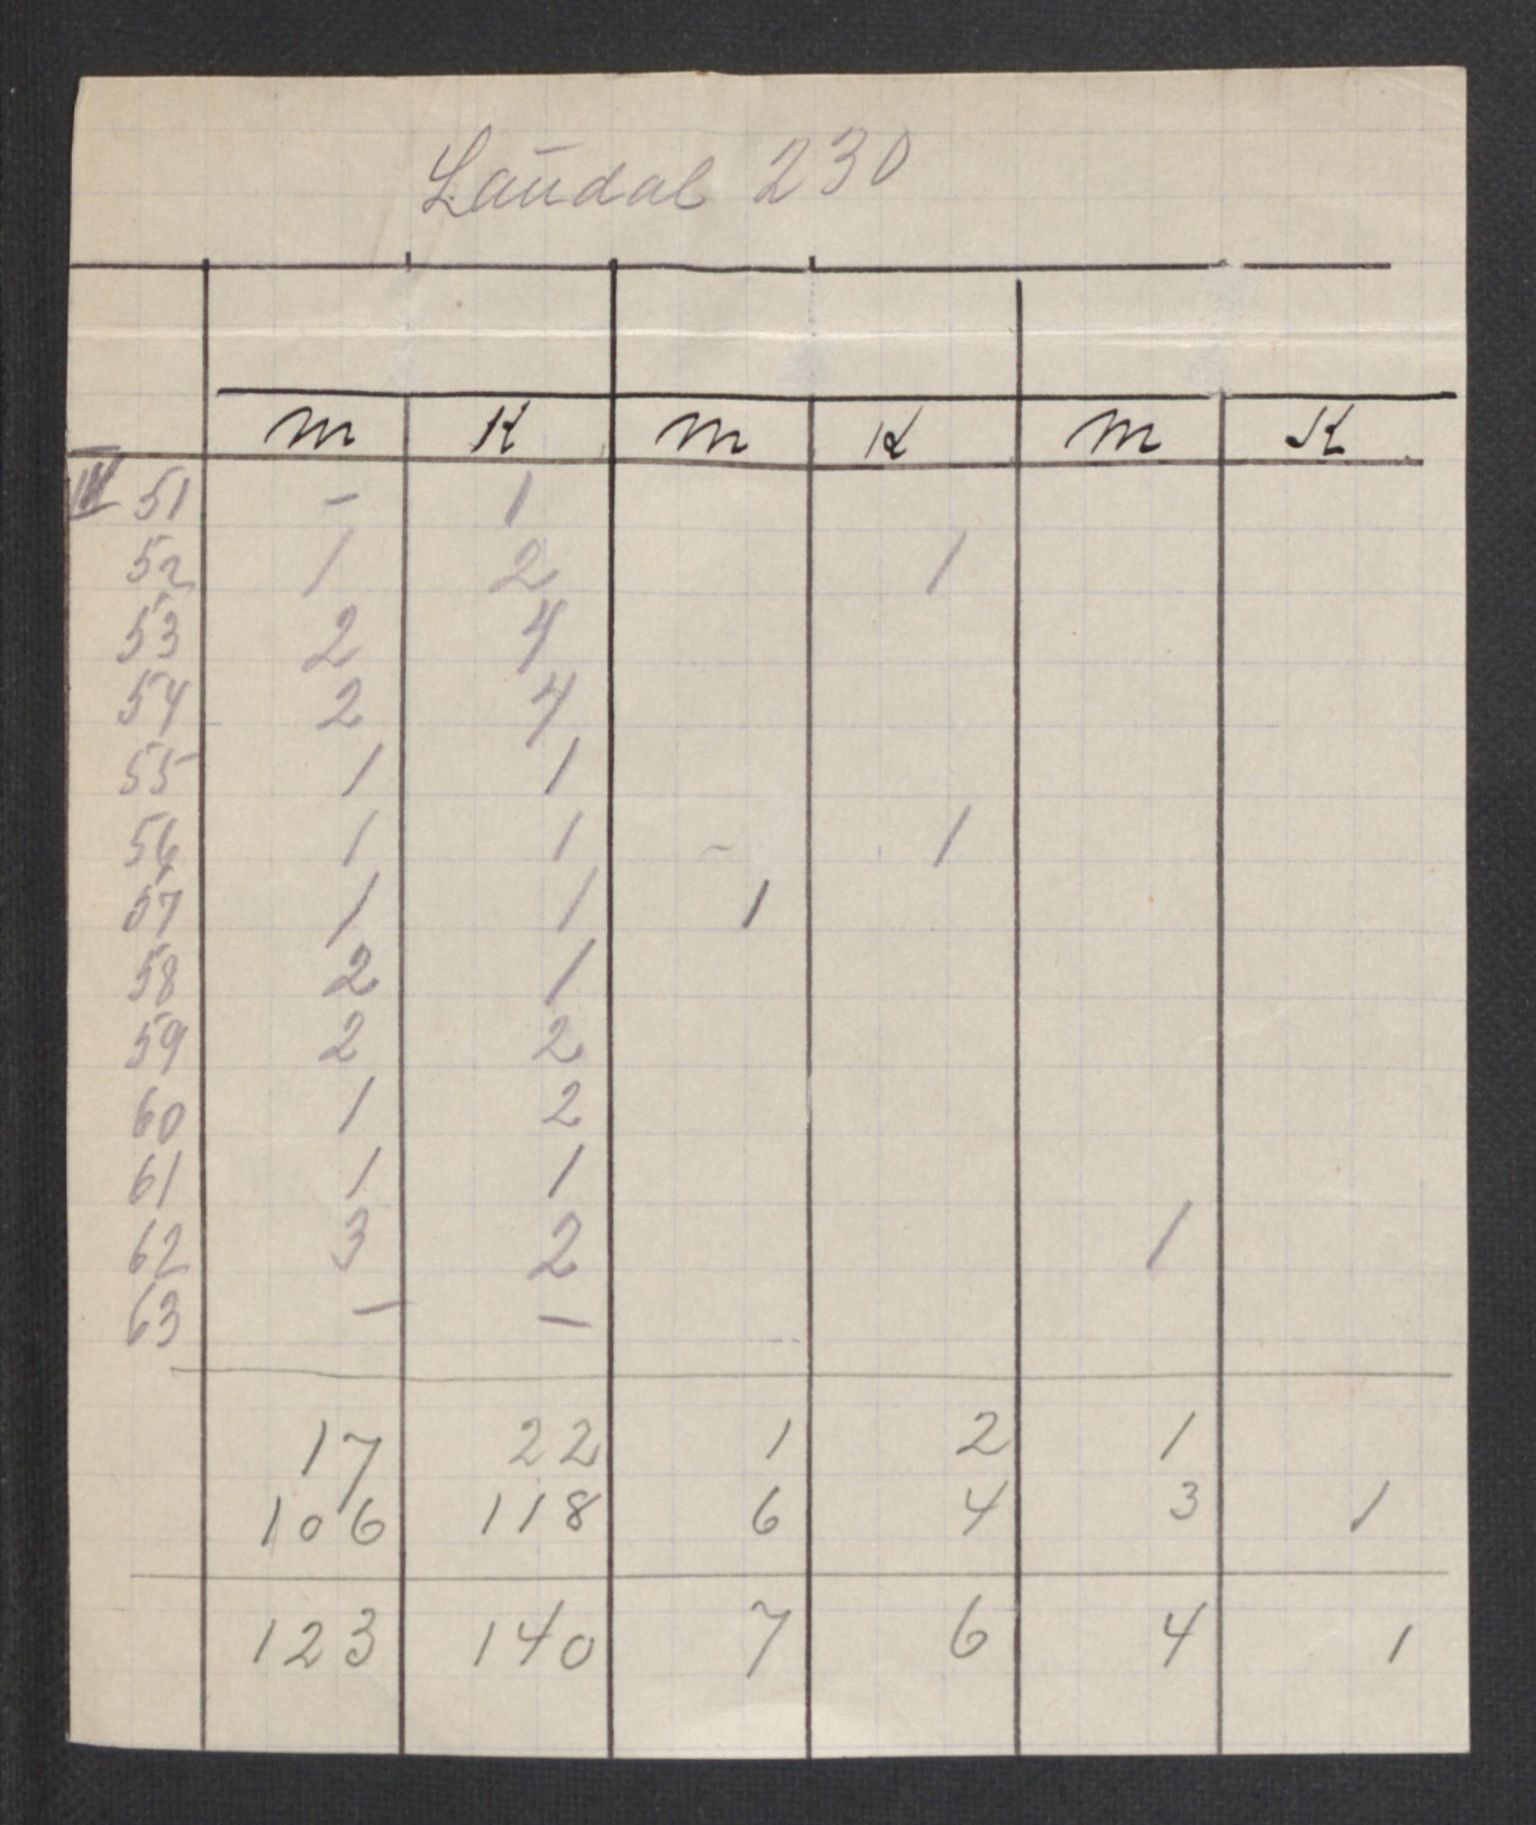 Laūdal 230
M K M K M K
III 51 - 1
52 1 2 1
53 2 4
54 2 4
55 1 1
56 1 1 - 1
57 1 1 1
58 2 1
59 2 2
60 1 2
61 1 1
62 3 2 1
63 - -
17 22 1 2 1
106 118 6 4 3 1
123 140 7 6 4 1